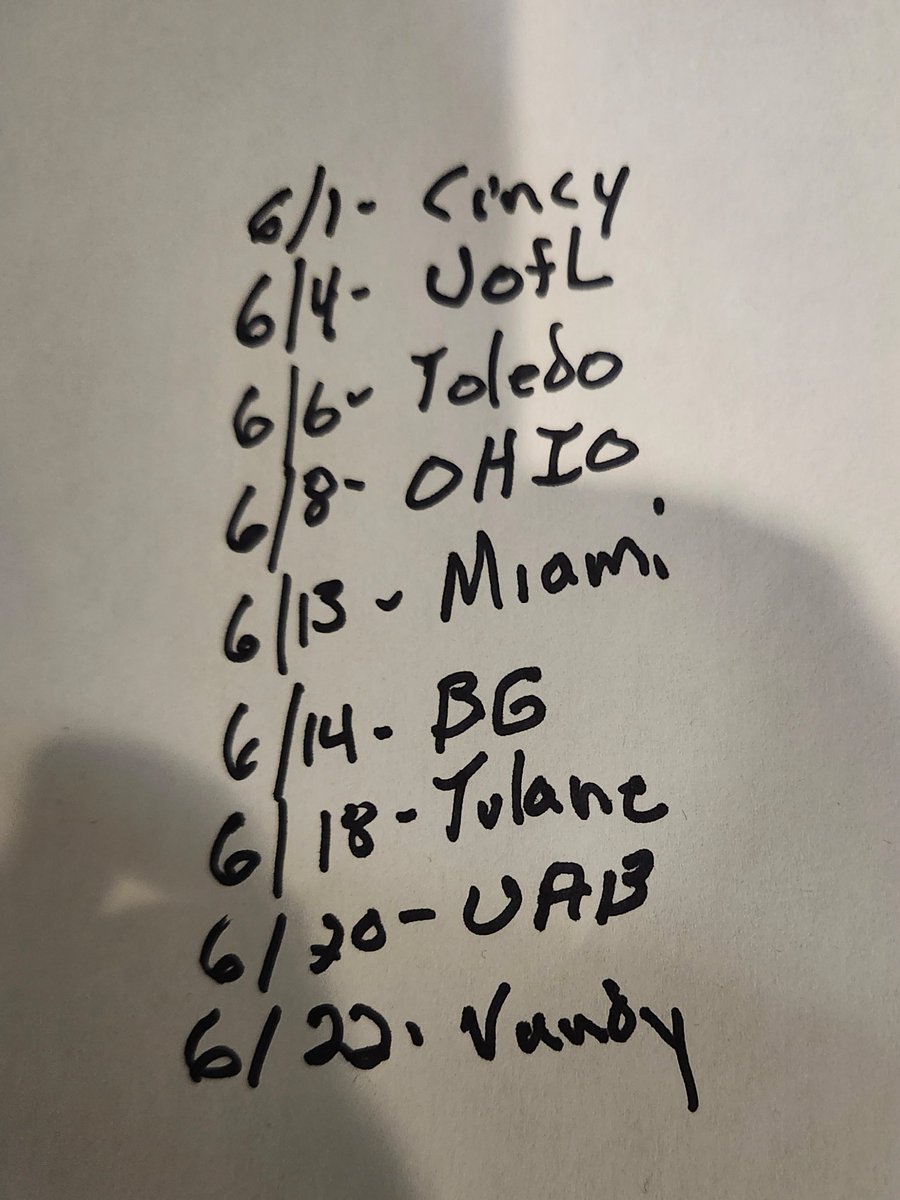 6/1- Cincy
6/4- UofL
6/6- Toledo
6/8- OHIO
6/13- Miami
6/14- BG
6/18- Tulane
6/20- UAB
6/22- Vandy